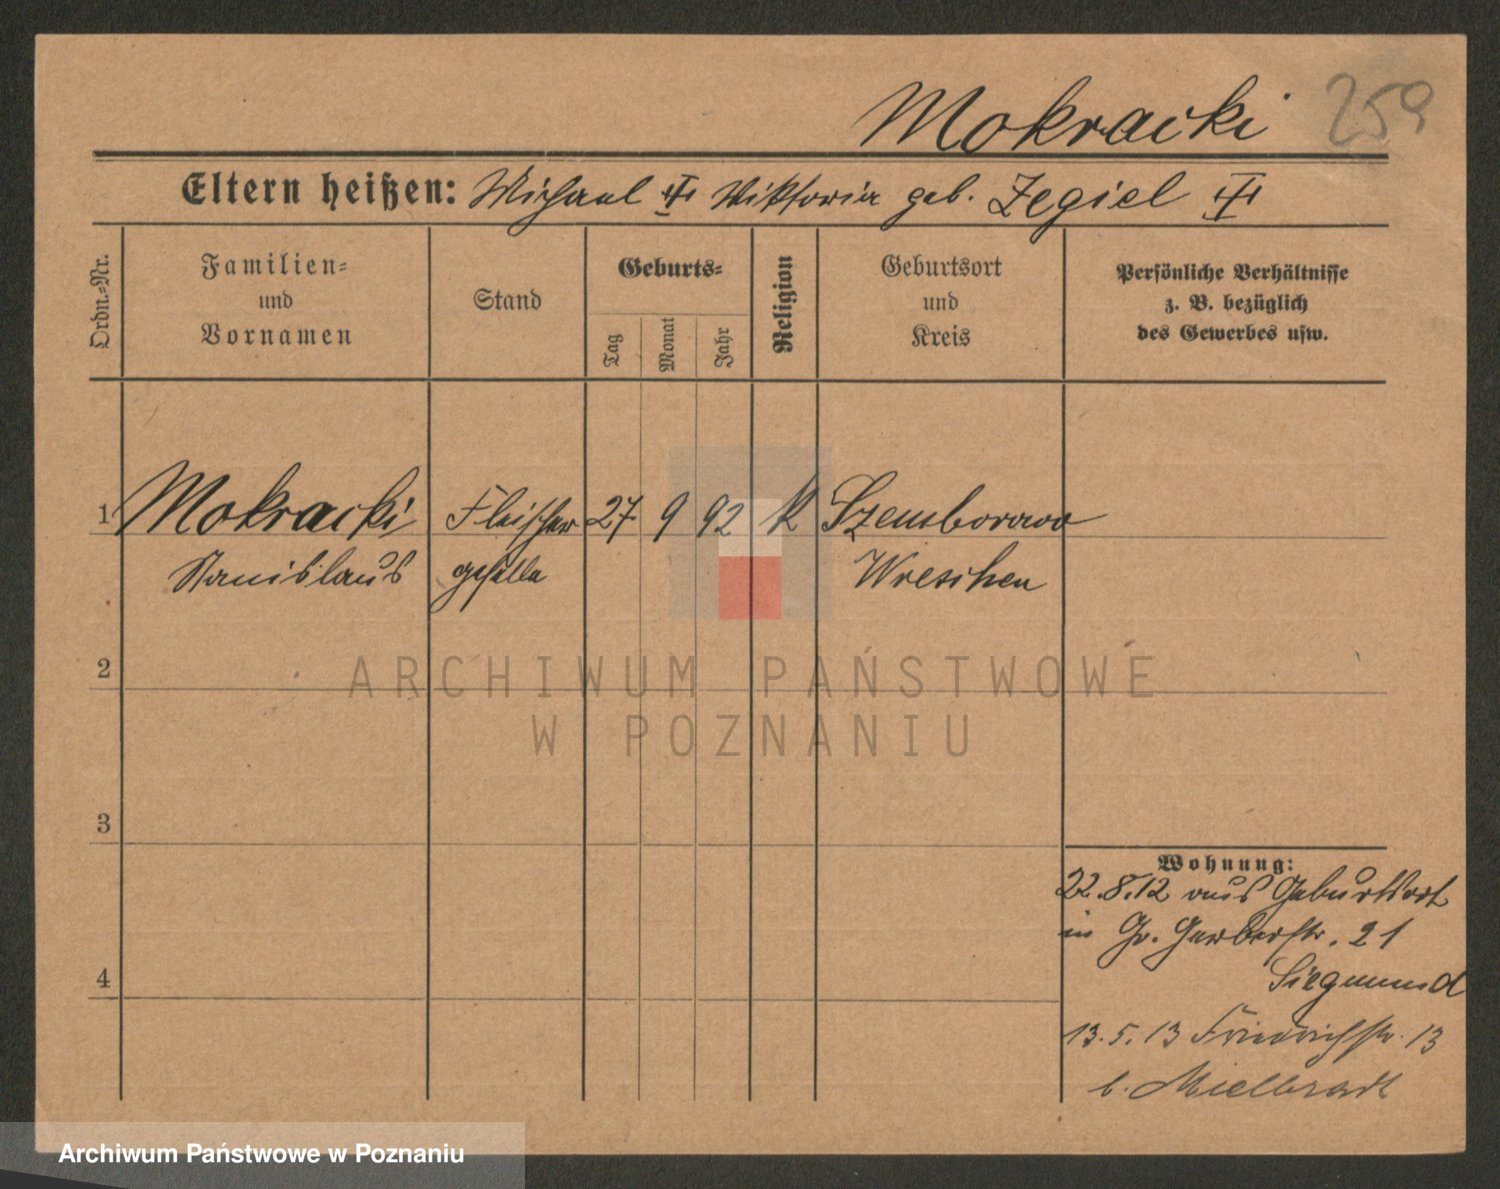 Mokracki 259
Eltern heißen: Michael Wiktoria geb. Zegiel
Ordn.-Nr.
Familien-
und
Vornamen
Stand
Geburts-
Tag
Monat
Jahr
Religion
Geburtsort
und
Kreis
Persönliche Verhältnisse
z. B. bezüglich
des Gewerbes usw.
1 Mokracki Fleischer 27 9 92 k Szemborowo
Stanislaus geselle Wreschen
2
ARCHIWUM PAŃSTWOWE
W POZNANIU
3
Wohnung:
22.8.12 aus Geburtsort
in Gr. Gerberstr. 21
4
Siegmund
13.5.13 Friedrichstr. 13
b. Mielbradt
Archiwum Państwowe w Poznaniu